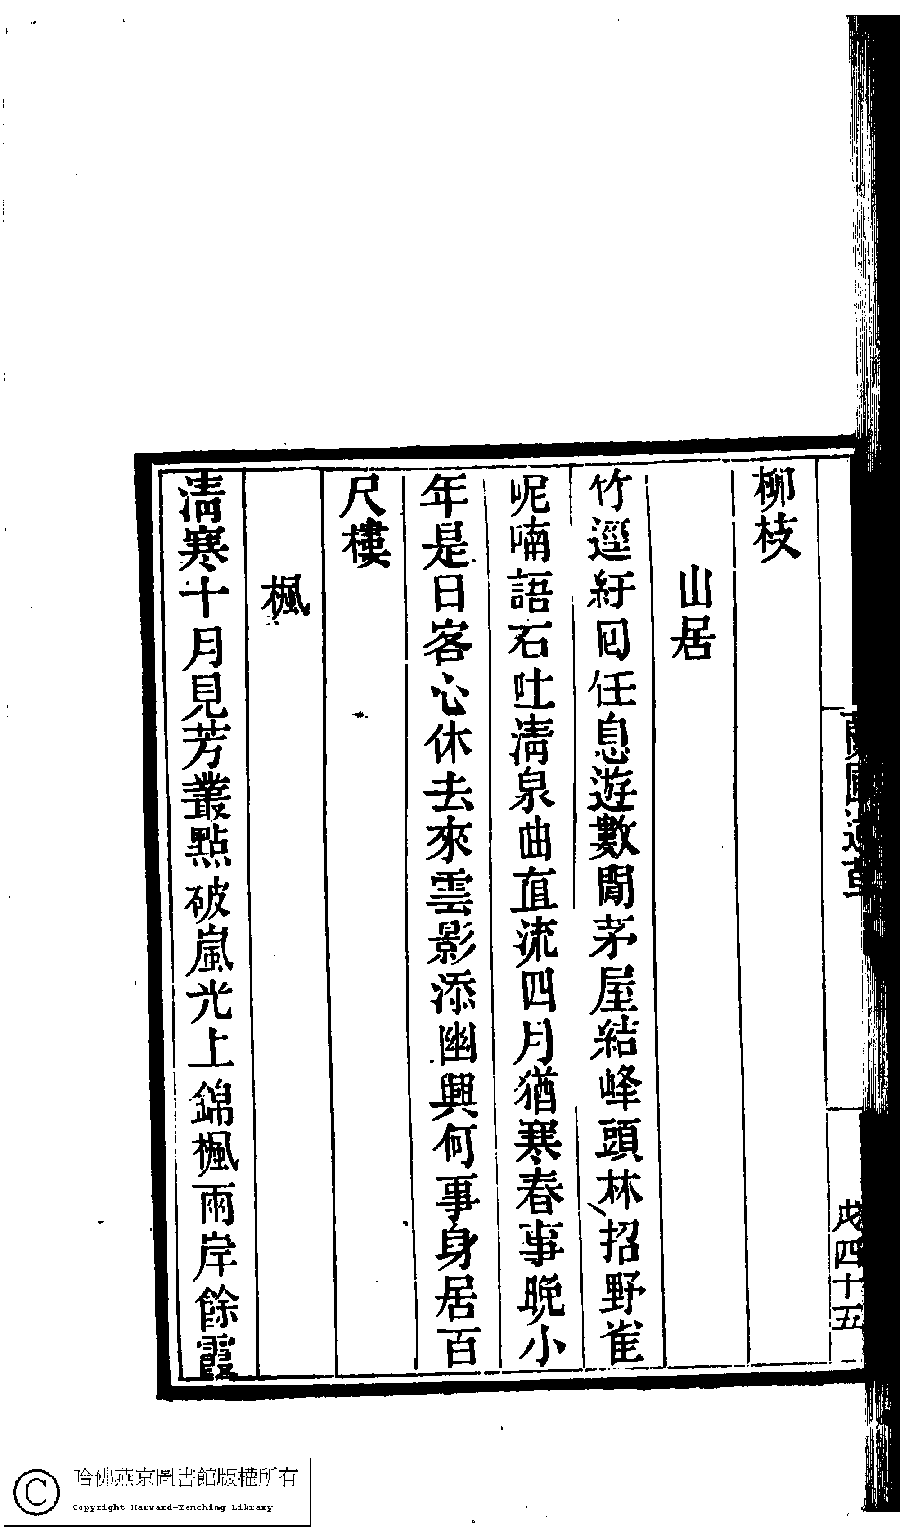 柳枝
山居
竹逕紆囘任息遊數閒茅屋結峰頭林招野雀
呢喃語石吐淸泉曲直流四月猶寒春事晚小
年是日客心休去來雲影添幽興何事身居百
尺樓
楓
淸寒十月見芳叢點破嵐光上錦楓兩岸餘霞
戌四十五
哈佛燕京圖書館版權所有
Copyright Harvard-Yenching Library